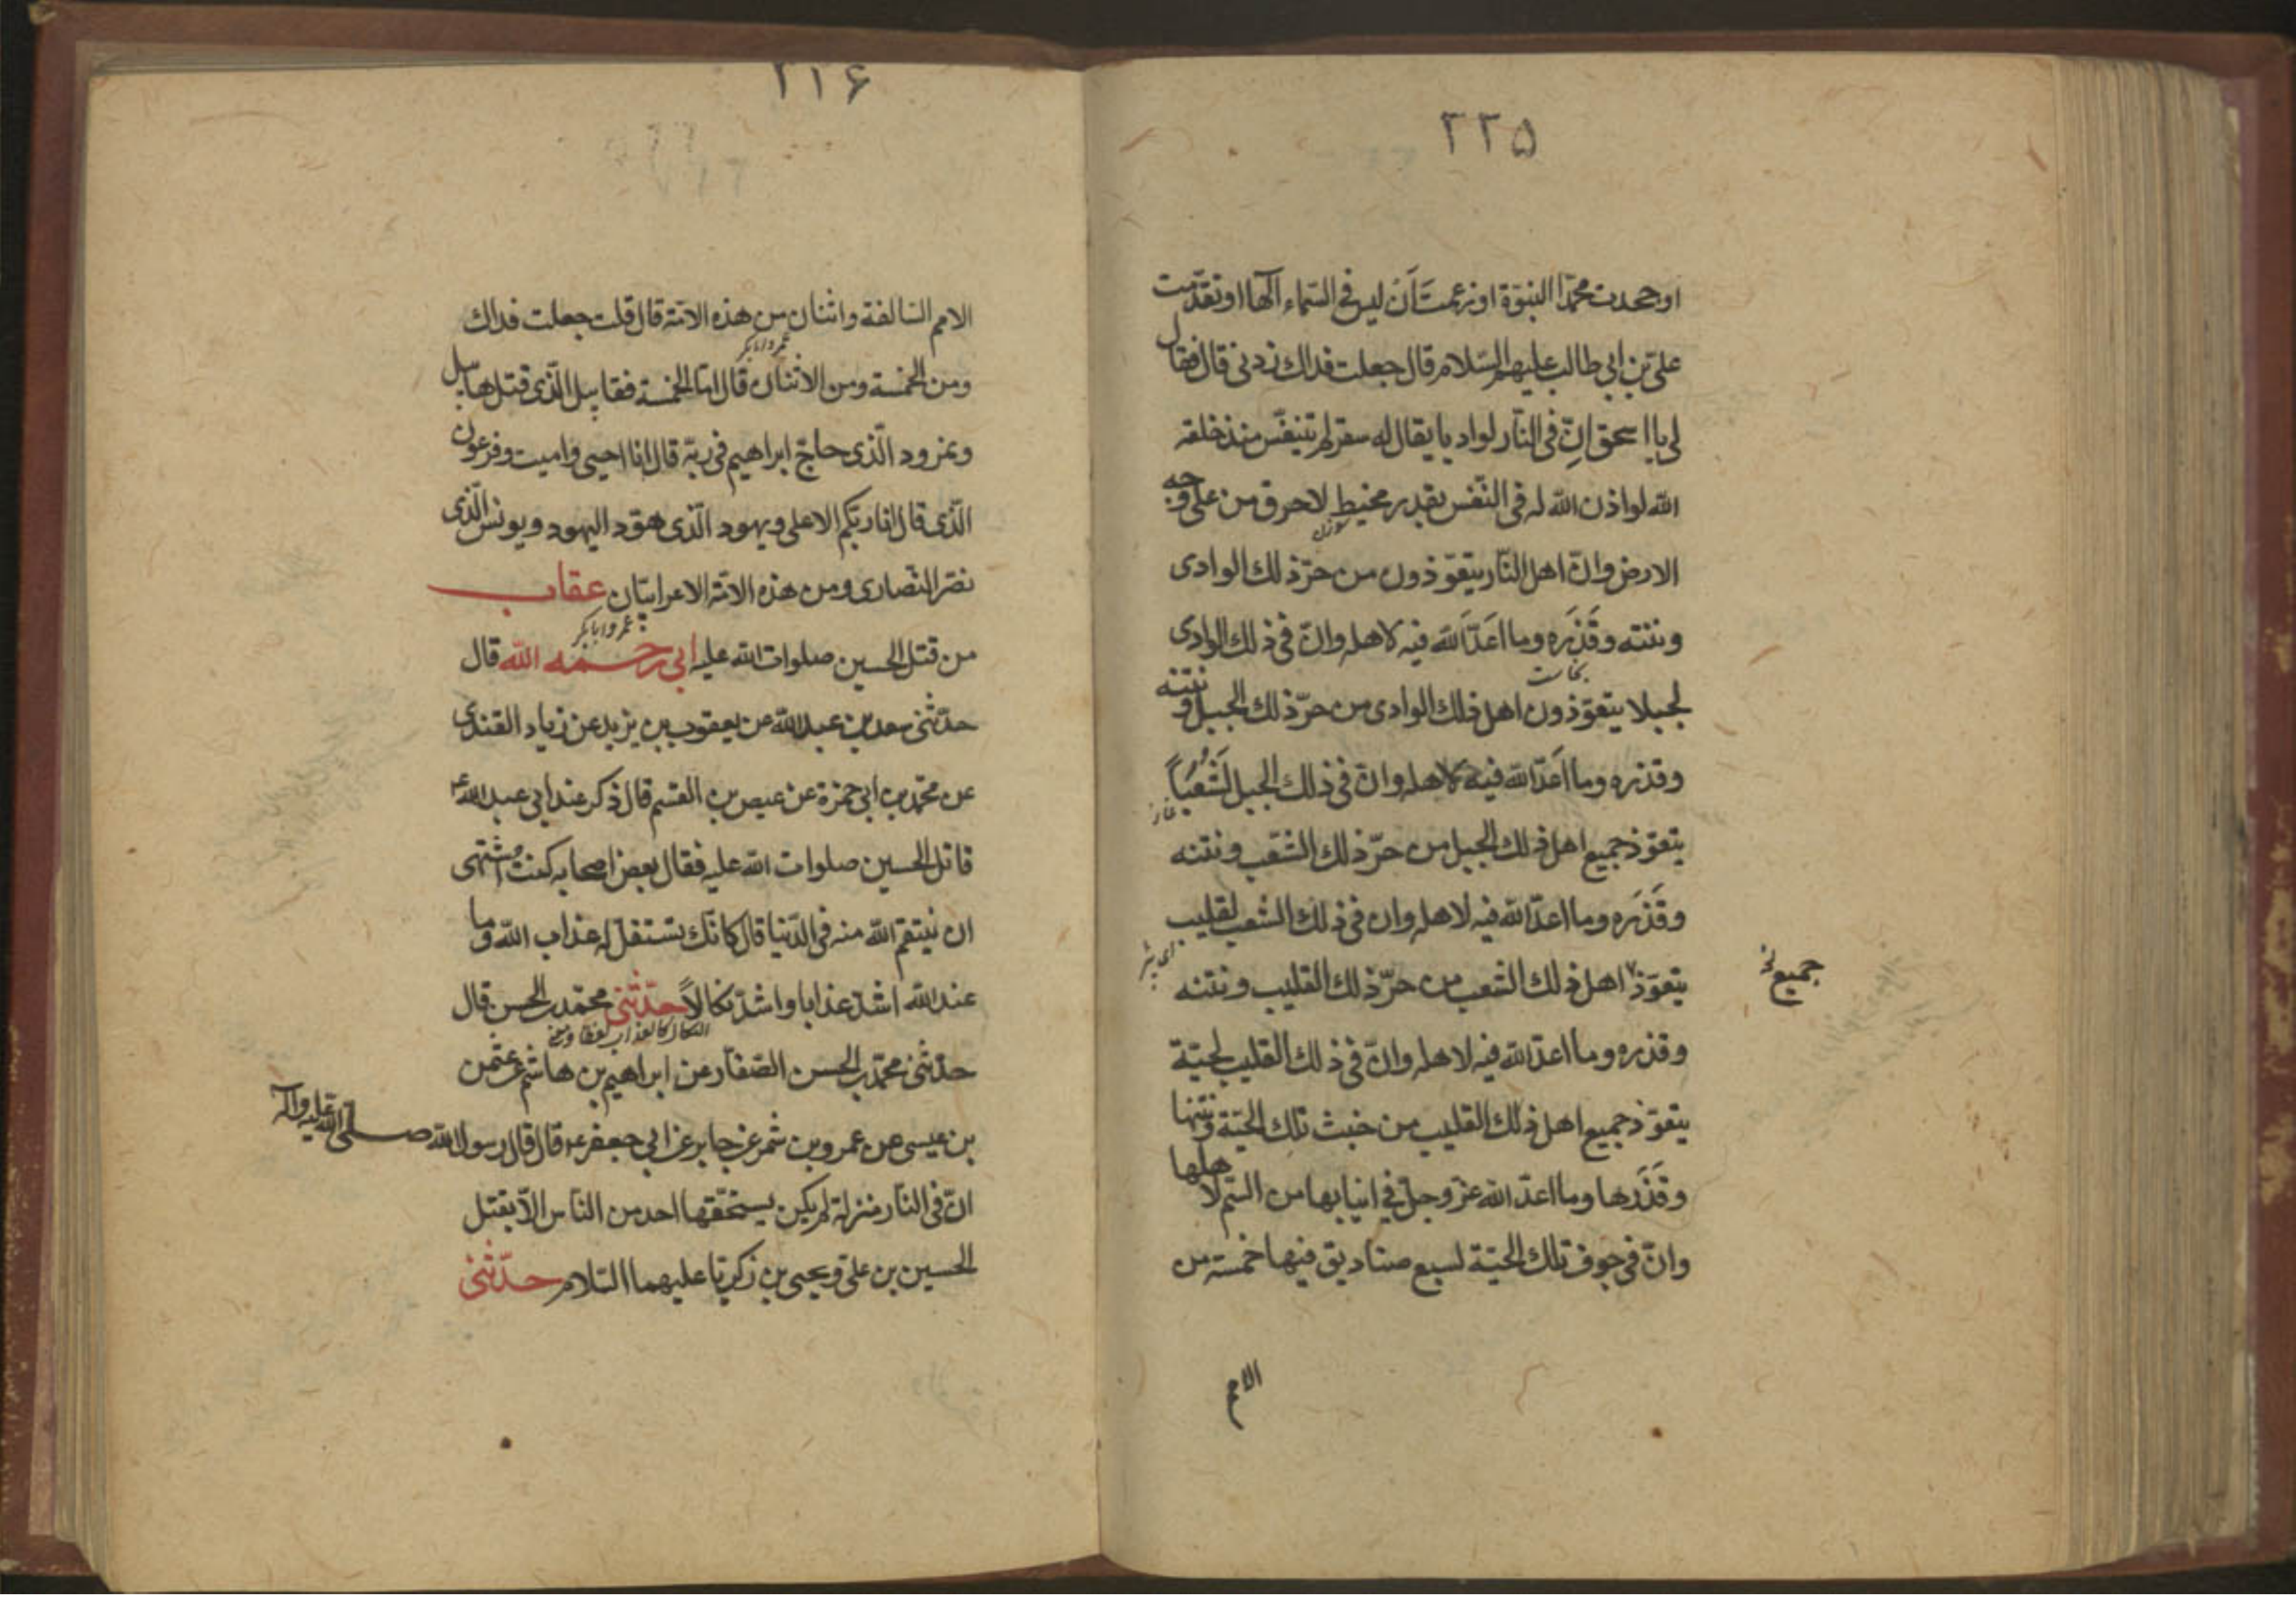 ۲۲۵
او جحدت محمّدا النبوّة او زعمت اَنْ ليس فى السّماء آلها او تقدّمت
علىّ بن ابى طالب عليهم السّلام قال جعلت فداك زدنى قال فقال
لى يا اسحق انّ فى النّار لواديا يقال له سقر لم يتنفّس منذ خلقه
الله لو اذن الله له فى التنّفس بقدر مخيط لاحرق من على وجه
سوزن
الارض وانّ اهل النّار يتعوّذون من حرّ ذلك الوادى
ونتنه وقَذَره وما اَعَدّ الله فيه لاهله وانّ فى ذلك الوادى
نجاست
لجبلا يتعوّذون اهل ذلك الوادى من حرّ ذلك الجبل ونتنه
وقذره وما اَعَدّ الله فيه لاهله وانّ فى ذلك الجبل لَشُعْبَاً
غار
يتعوّذ جميع اهل ذلك الجبل من حرّ ذلك الشّعب ونتنه
وقَذَره وما اعدّ الله فيه لاهله وان فى ذلك الشعب لقليب
اى بئر
جميع خ
يتعوّذ اهل ذلك الشعب من حرّ ذلك القليب ونتنه
وقذره وما اعدّ الله فيه لاهله وانّ فى ذلك القليب لحيّة
يتعوّذ جميع اهل ذلك القليب من خبث تلك الحيّة ونتنها
وقَذَرها وما اعدّ الله عزّ وجلّ فى انيابها من السّم لاهلها
وانّ فى جوف تلك الحيّة لسبع صناديق فيها خمسة من
الامم
۲۲۶
الامم السّالفة واثنان من هذه الامّة قال قلت جعلت فداك
عمر و ابابكر
ومن الخمسة ومن الاثنان قال امّا الخمسة فقابيل الّذى قتل هابيل
ونمرود الّذى حاجّ ابراهيم فى ربّه قال انا احيى واميت وفرعون
الّذى قال انا ربّكم الاعلى ويهود الّذى هوّد اليهود ويونس الّذى
نصّر النّصارى ومن هذه الامّة الاعرابيّان عقاب
عمر و ابابكر
من قتل الحسين صلوات الله عليه ابى رحمه الله قال
حدّثنى سعد بن عبد الله عن يعقوب بن يزيد عن زياد القندى
عن محمّد بن ابى حمزة عن عيص بن القسم قال ذكر عند ابى عبد الله ع
قاتل الحسين صلوات الله عليه فقال بعض اصحابه كنت اشتهى
ان ينتقم الله منه فى الدّنيا قال كانّك تستقلّ له عذاب الله وما
عند الله اشدّ عذابا واشدّ نكالاً حدّثنى محمّد بن الحسن قال
النكال كالعذاب لفظا و معنى
حدّثنى محمّد بن الحسن الصّفّار عن ابراهيم بن هاشم عن عثمن
بن عيسى عن عمرو بن شمر عن جابر عن ابى جعفر ع قال قال رسول الله صلى الله عليه وآله
انّ فى النّار منزلة لم يكن يستحقّها احد من النّاس الّا بقتل
الحسين بن علىّ و يحيى بن زكريّا عليهما السّلام حدّثنى